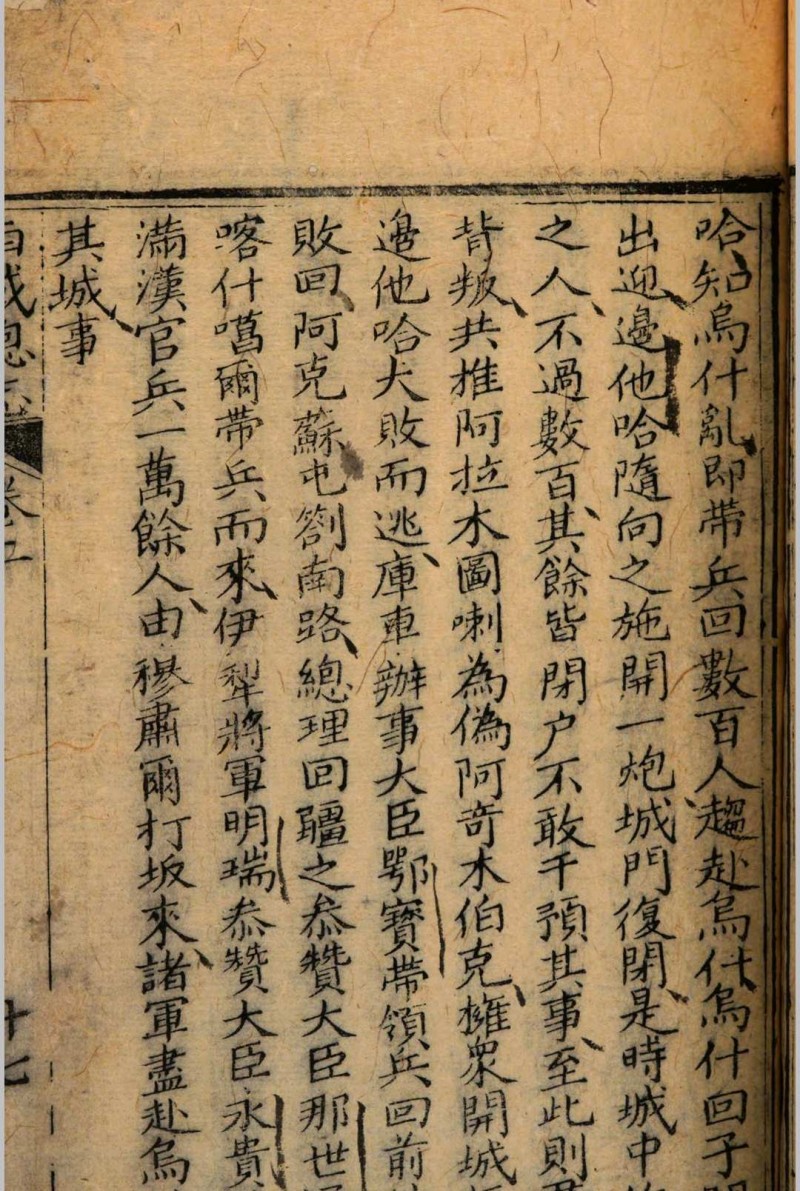 哈知烏什亂即带兵回數百人趨赴烏什烏什回子
出迎邊他哈隨向之施開一炮城門復閉是時城中
之人不過數百其餘皆閉户不敢干預其事至此則
背叛共推阿拉木圖喇為偽阿奇木伯克擁衆開城
邊他哈大敗而逃庫車辦事大臣鄂寶带領兵回前
敗回阿克蘇屯劄南路總理回疆之叅贊大臣那世
喀什噶爾带兵而來伊犂將軍明瑞叅贊大臣永貴
滿漢官兵一萬餘人由穆肅爾打坂來諸軍盡赴烏
其城事
卷五
十七